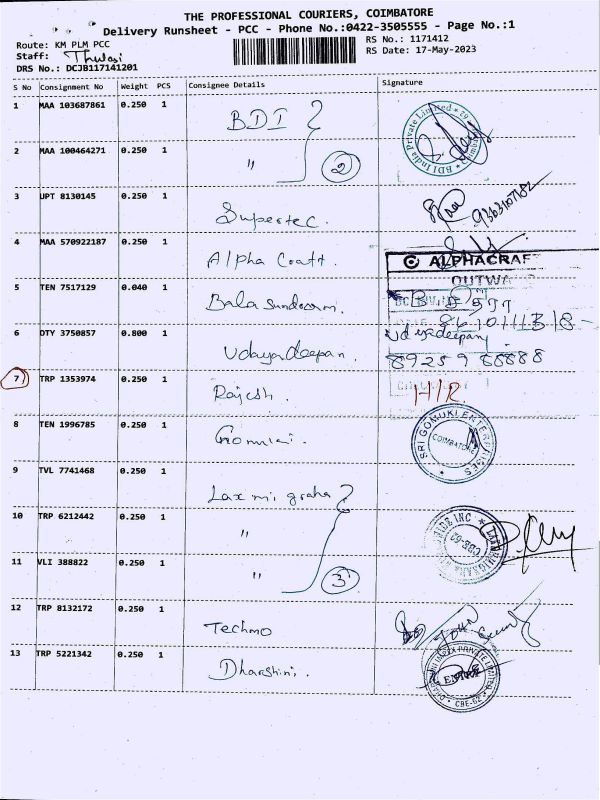 THE PROFESSIONAL COURIERS, COIMBATORE
Delivery Runsheet - PCC - Phone No.:0422-3505555 - Page No.:1
Route: KM PLM PCC
RS No.: 1171412
Staff: Thulasi
RS Date: 17-May-2023
DRS No.: DCJB117141201
S No Consignment No Weight PCS Consignee Details Signature
1 MAA 103687861 0.250 1 BDI
2 MAA 100464271 0.250 1 " 2
BDI India Private Limited
3 UPT 8130145 0.250 1 Supertec.
4 MAA 570922187 0.250 1 Alpha Coatt.
ALPHACRAF
OUTWA
5 TEN 7517129 0.040 1 Bala Sundaram.
6 DTY 3750857 0.800 1 Udayadeepan.
Udayadeepan
89259 88888
7 TRP 1353974 0.250 1 Rajesh. H/R.
8 TEN 1996785 0.250 1 Gomuki.
SRI GOMUKI ENTERPRISES
COIMBATORE
9 TVL 7741468 0.250 1 Laxmi graha
10 TRP 6212442 0.250 1 "
11 VLI 388822 0.250 1 " 3
12 TRP 8132172 0.250 1 Techmo
13 TRP 5221342 0.250 1 Dharshini.
PRIVATE LIMITED
CBE-62